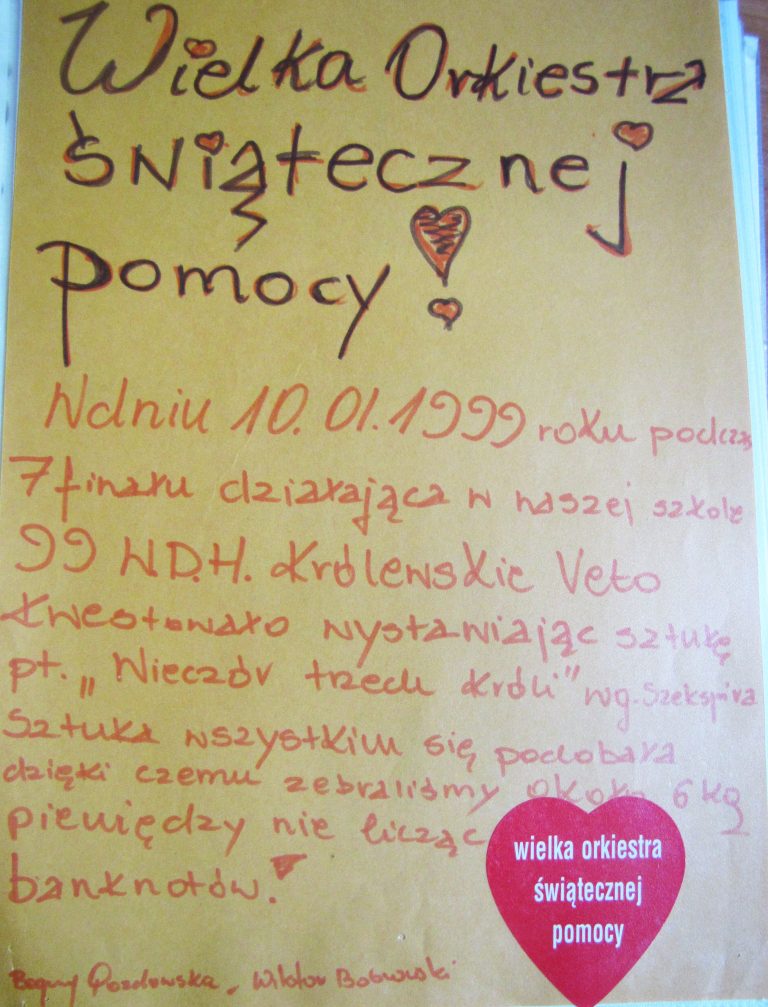 Wielka Orkiestra
świątecznej
pomocy!
W dniu 10.01.1999 roku podczas
7 finału działająca w naszej szkole
99 W.D.H. Królewskie Veto
kwestowało wystawiając sztukę
pt. „Wieczór trzech króli” wg. Szekspira
Sztuka wszystkim się podobała
dzięki czemu zebraliśmy około 6 kg
pieniędzy nie licząc
banknotów.
Wiktor Bobrowski
wielka orkiestra
świątecznej
pomocy